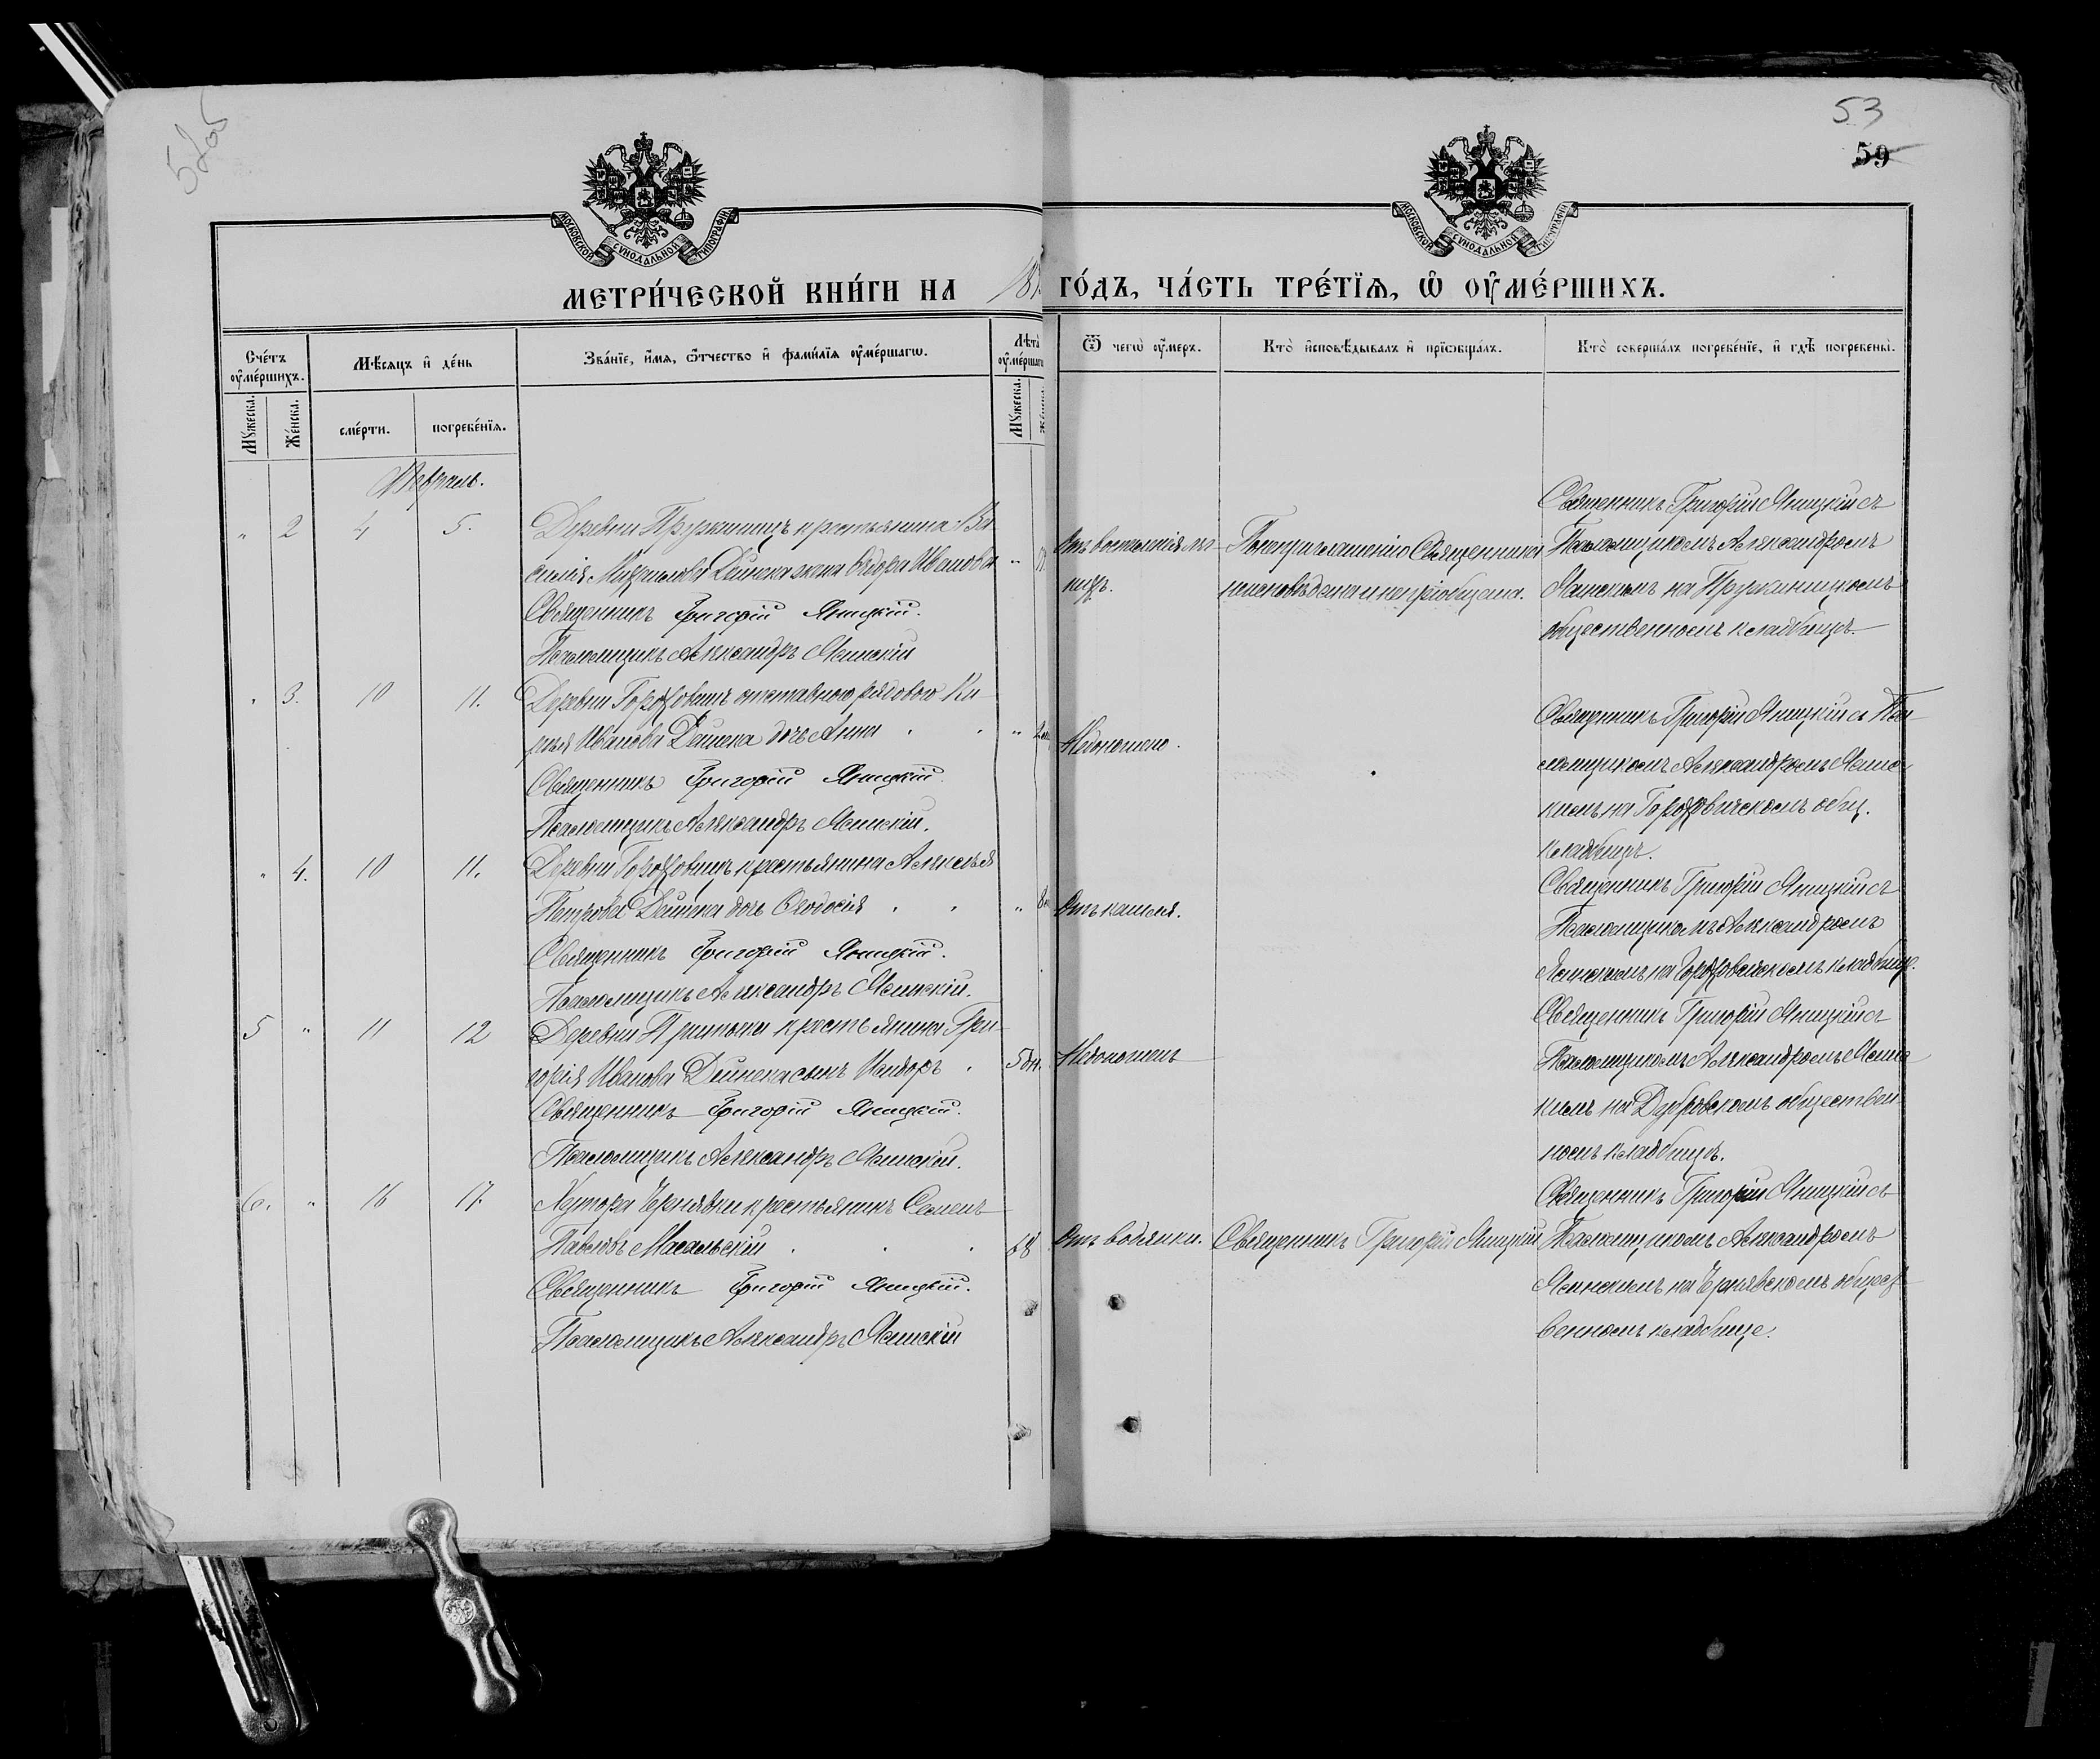 52об
53
59
МОСКОВСКОЙ СѴНОДАЛЬНОЙ ТИПОГРАФІИ
МОСКОВСКОЙ СѴНОДАЛЬНОЙ ТИПОГРАФІИ
МЕТРИ́ЧЕСКОЙ КНИ́ГИ НА 18 ГО́ДЪ, ЧА́СТЬ ТРЕ́ТЇѦ, Ѡ҆ ОУ҆МЕ́РШИХЪ.
Сче́тъ оу҆ме́ршихъ.
Мѣ́сяцъ и҆ де́нь
Зва́нїе, и҆́мѧ, ѻ҆́тчество и҆ фамѝлїѧ оу҆ме́ршагѡ.
Лѣ́та оу҆ме́ршагѡ
Ѿ чегѡ̀ оу҆́меръ.
Кто̀ и҆сповѣ́дывалъ и҆ прїѡбща́лъ.
Кто̀ соверша́лъ погребе́нїе, и҆ гдѣ̀ погребены̀.
Мꙋ́жеска.
Же́нска.
сме́рти.
погребе́нїѧ.
Мꙋ́жеска.
Февраль.
" 2 4 5. Деревни Пружиницъ крестьянина Ва
силія Михаилова Дейнека жена Ѳёдора Иванова "
Священникъ Григорій Яницкій.
Псаломщикъ Александръ Ясинскій
Отъ воспаленія лег
кихъ.
По неприглашенію Священника
не исповѣдана и не пріобщена.
Священникъ Григорій Яницкій съ
Псаломщикомъ Александромъ
Ясинскимъ на Пружиницкомъ
общественномъ кладбищѣ.
" 3. 10 11. Деревни отставного рядового Ки
рѣя Иванова Дейнека дочь Анна "
Священникъ Григорій Яницкій.
Псаломщикъ Александръ Ясинскій.
Недоношена.
Священникъ Григорій Яницкій съ Пса
ломщикомъ Александромъ Ясинс
кимъ на общ.
кладбищѣ.
" 4. 10 11. Деревни крестьянина Алексѣя
Петрова Дейнека дочь Ѳеодосія "
Священникъ Григорій Яницкій.
Псаломщикъ Александръ Ясинскій.
Отъ кашля.
Священникъ Григорій Яницкій съ
Псаломщикомъ Александромъ
Ясинскимъ на кладбищѣ.
5 " 11 12 Деревни крестьянина Гри
горія Иванова Дейнека сынъ 5 дн.
Священникъ Григорій Яницкій.
Псаломщикъ Александръ Ясинскій.
Недоношенъ
Священникъ Григорій Яницкій съ
Псаломщикомъ Александромъ Ясинс
кимъ на Дубровскомъ обществен
номъ кладбищѣ.
6. " 16 17. Хутора Чернявки крестьянинъ Семенъ
Павловъ Масальскій 68
Священникъ Григорій Яницкій.
Псаломщикъ Александръ Ясинскій
Отъ водянки.
Священникъ Григорій Яницкій
Священникъ Григорій Яницкій съ
Псаломщикомъ Александромъ
Ясинскимъ на Чернявскомъ общест
венномъ кладбище.